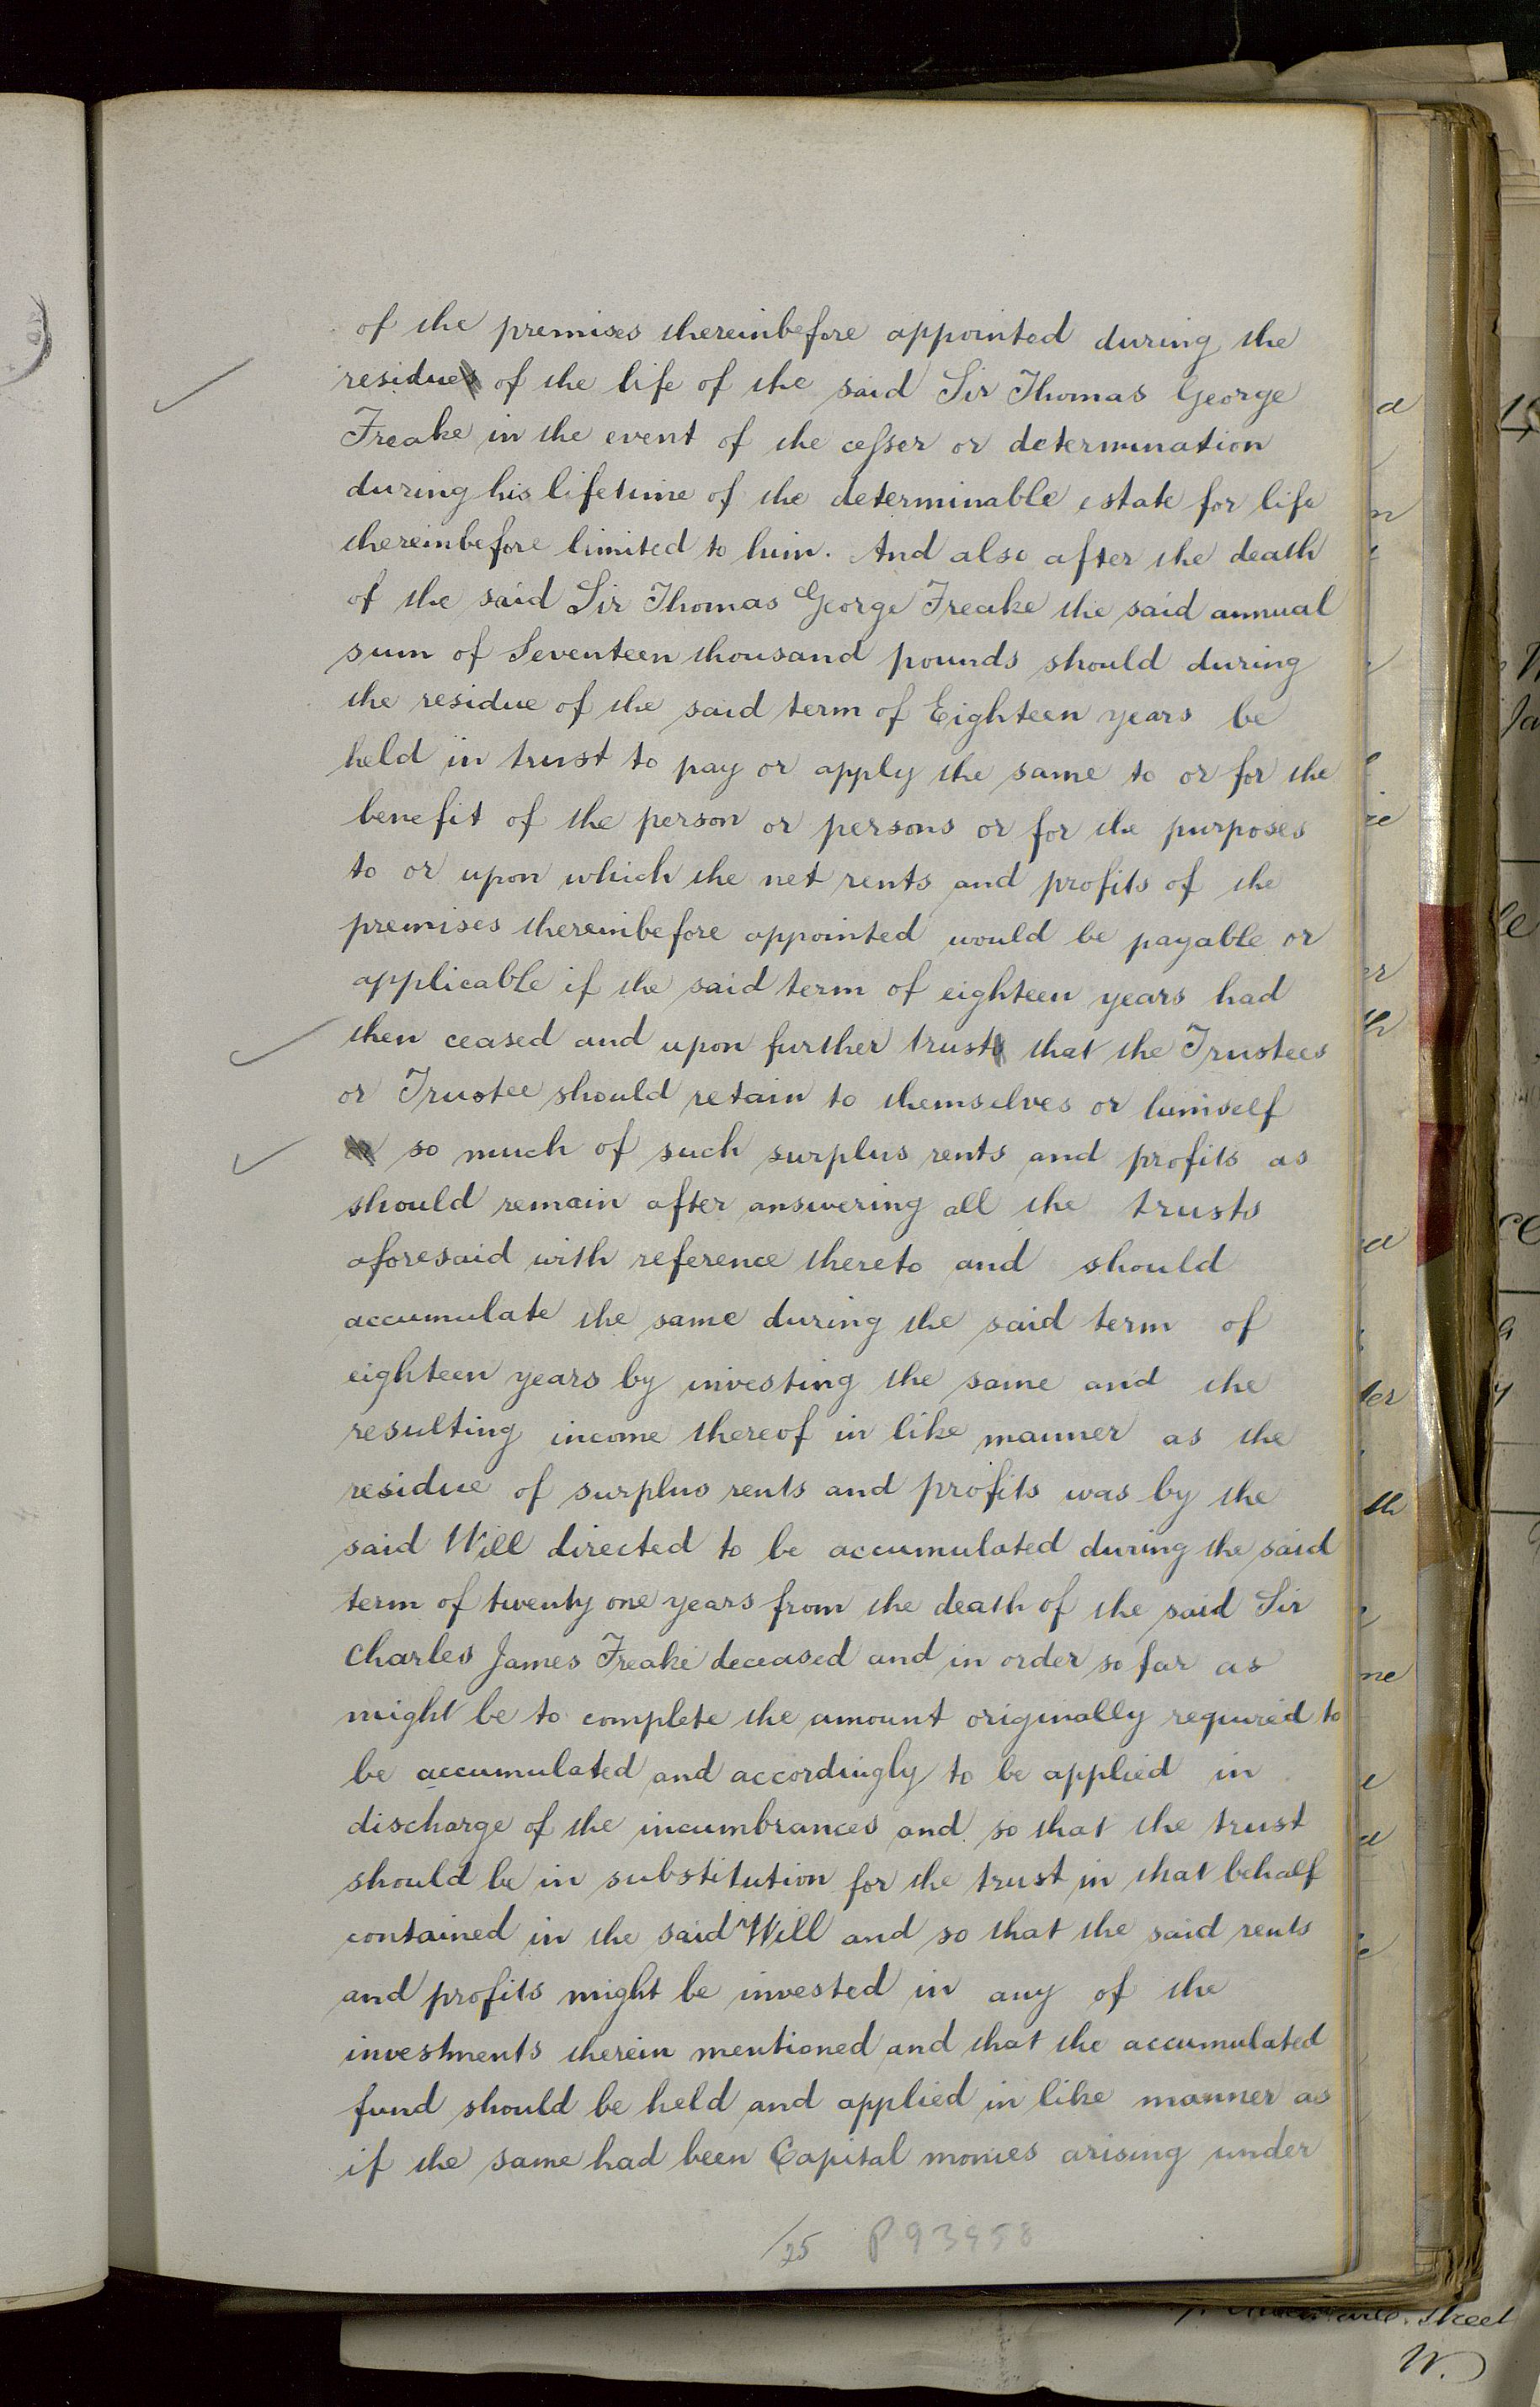 of the premises thereinbefore appointed during the
residue of the life of the said Sir Thomas George
Freake in the event of the cesser or determination
during his lifetime of the determinable estate for life
thereinbefore limited to him. And also after the death
of the said Sir Thomas George Freake the said annual
sum of Seventeen thousand pounds should during
the residue of the said term of Eighteen years be
held in trust to pay or apply the same to or for the
benefit of the person or persons or for the purposes
to or upon which the net rents and profits of the
premises thereinbefore appointed would be payable or
applicable if the said term of eighteen years had
then ceased and upon further trust that the Trustees
or Trustee should retain to themselves or himself
so much of such surplus rents and profits as
should remain after answering all the trusts
aforesaid with reference thereto and should
accumulate the same during the said term of
eighteen years by investing the same and the
resulting income thereof in like manner as the
residue of surplus rents and profits was by the
said Will directed to be accumulated during the said
term of twenty one years from the death of the said Sir
Charles James Freake deceased and in order so far as
might be to complete the amount originally required to
be accumulated and accordingly to be applied in
discharge of the incumbrances and so that the trust
should be in substitution for the trust in that behalf
contained in the said Will and so that the said rents
and profits might be invested in any of the
investments therein mentioned and that the accumulated
fund should be held and applied in like manner as
if the same had been Capital monies arising under
/25 P93958
Street
W.